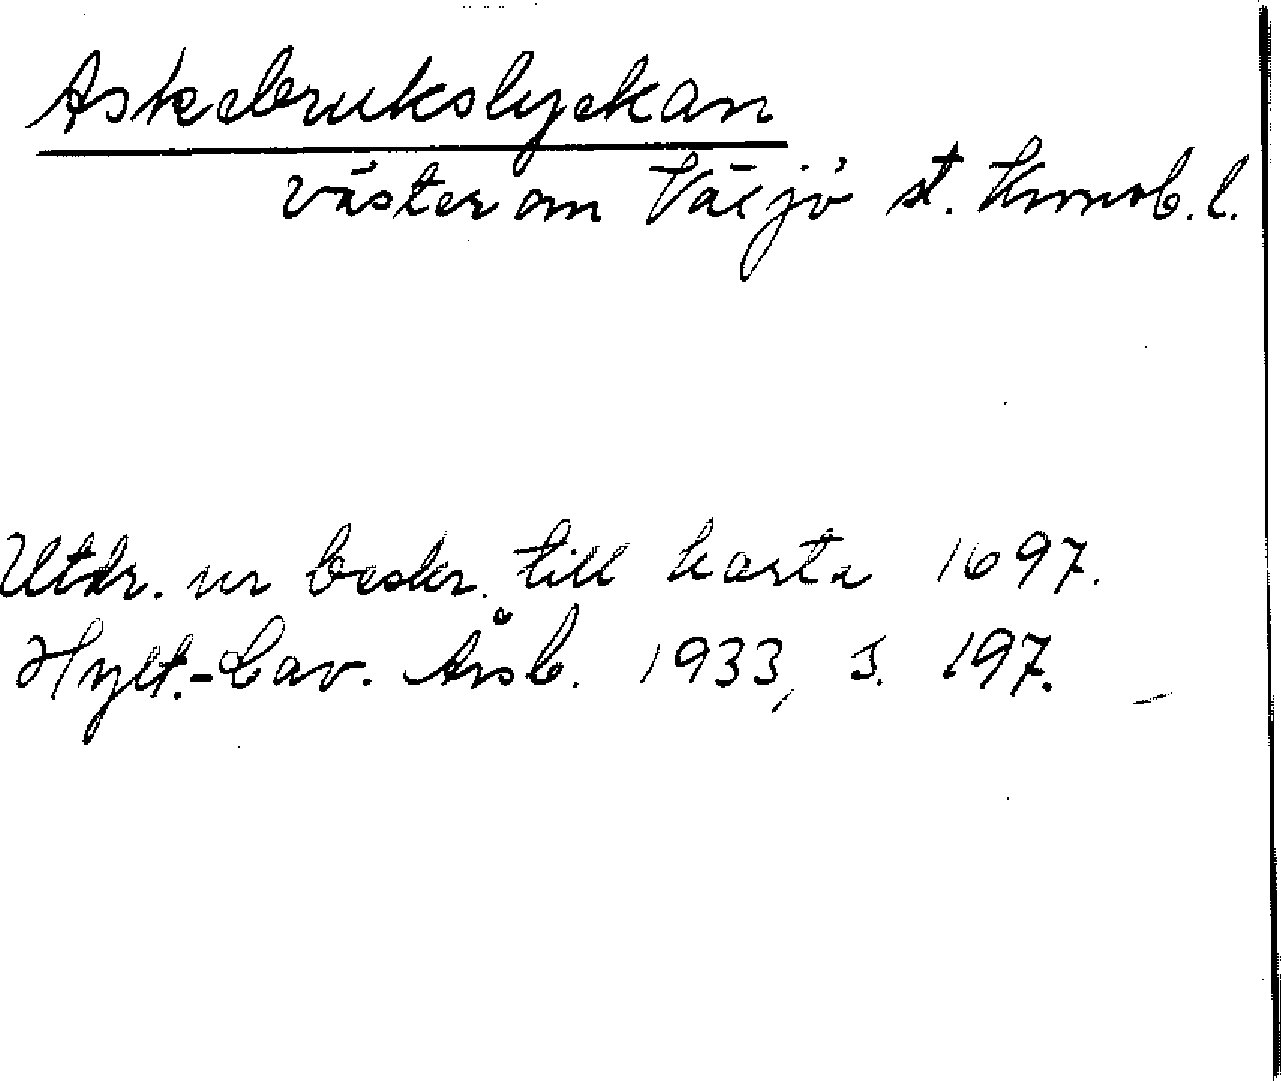 Askebrukslyckan
väster om Växjö st. Kronob. l.
Utdr. ur beskr. till karta 1697.
Hylt.-Cav. Årsb. 1933, s. 197.